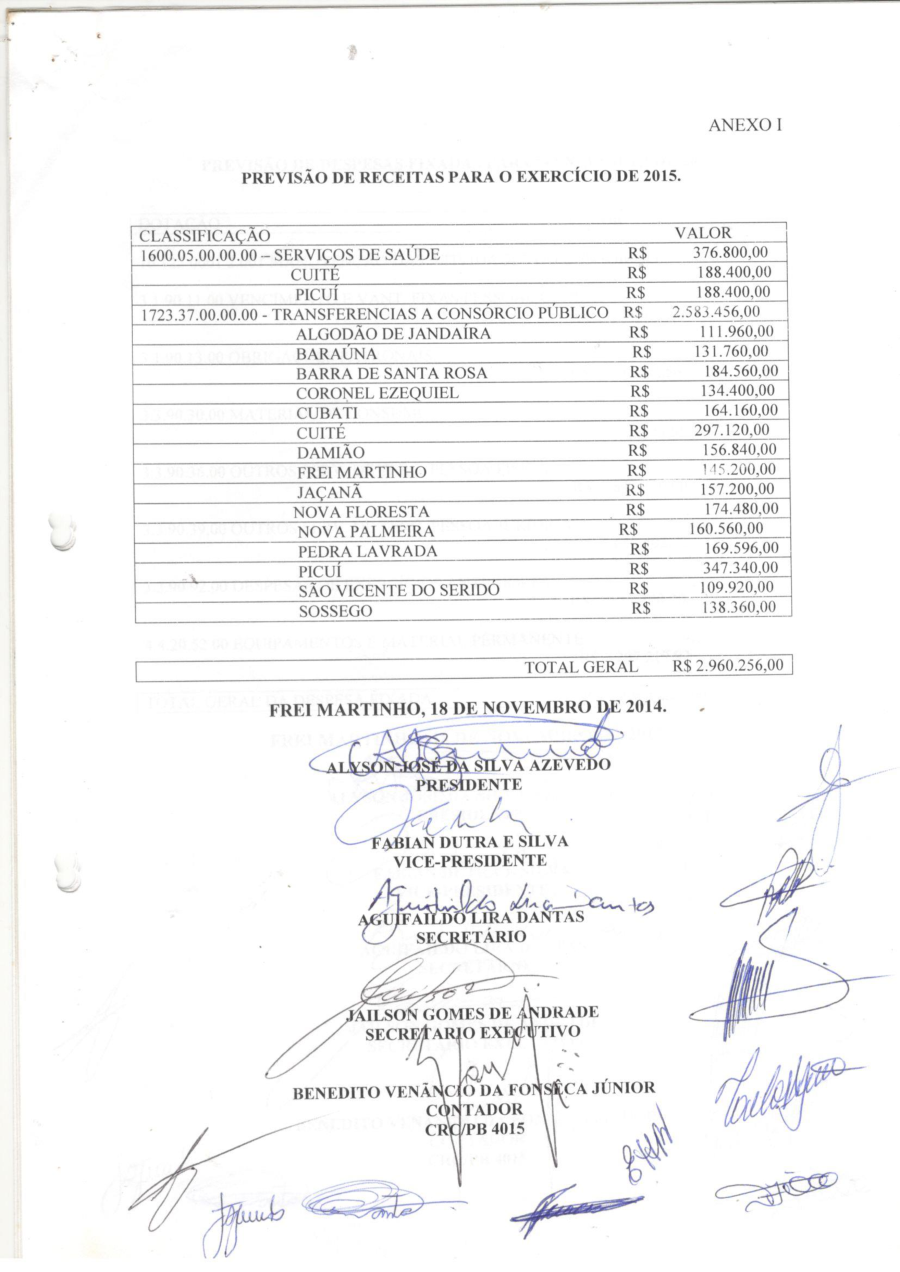 ANEXO I
PREVISÃO DE RECEITAS PARA O EXERCÍCIO DE 2015.
CLASSIFICAÇÃO VALOR
1600.05.00.00.00 – SERVIÇOS DE SAÚDE R$ 376.800,00
CUITÉ R$ 188.400,00
PICUÍ R$ 188.400,00
1723.37.00.00.00 - TRANSFERENCIAS A CONSÓRCIO PÚBLICO R$ 2.583.456,00
ALGODÃO DE JANDAÍRA R$ 111.960,00
BARAÚNA R$ 131.760,00
BARRA DE SANTA ROSA R$ 184.560,00
CORONEL EZEQUIEL R$ 134.400,00
CUBATI R$ 164.160,00
CUITÉ R$ 297.120,00
DAMIÃO R$ 156.840,00
FREI MARTINHO R$ 145.200,00
JAÇANÃ R$ 157.200,00
NOVA FLORESTA R$ 174.480,00
NOVA PALMEIRA R$ 160.560,00
PEDRA LAVRADA R$ 169.596,00
PICUÍ R$ 347.340,00
SÃO VICENTE DO SERIDÓ R$ 109.920,00
SOSSEGO R$ 138.360,00
TOTAL GERAL R$ 2.960.256,00
FREI MARTINHO, 18 DE NOVEMBRO DE 2014.
ALYSON JOSÉ DA SILVA AZEVEDO
PRESIDENTE
FABIAN DUTRA E SILVA
VICE-PRESIDENTE
Aguifaildo Lira Dantas
AGUIFAILDO LIRA DANTAS
SECRETÁRIO
Jailson
JAILSON GOMES DE ANDRADE
SECRETARIO EXECUTIVO
BENEDITO VENÂNCIO DA FONSÊCA JÚNIOR
CONTADOR
CRC/PB 4015